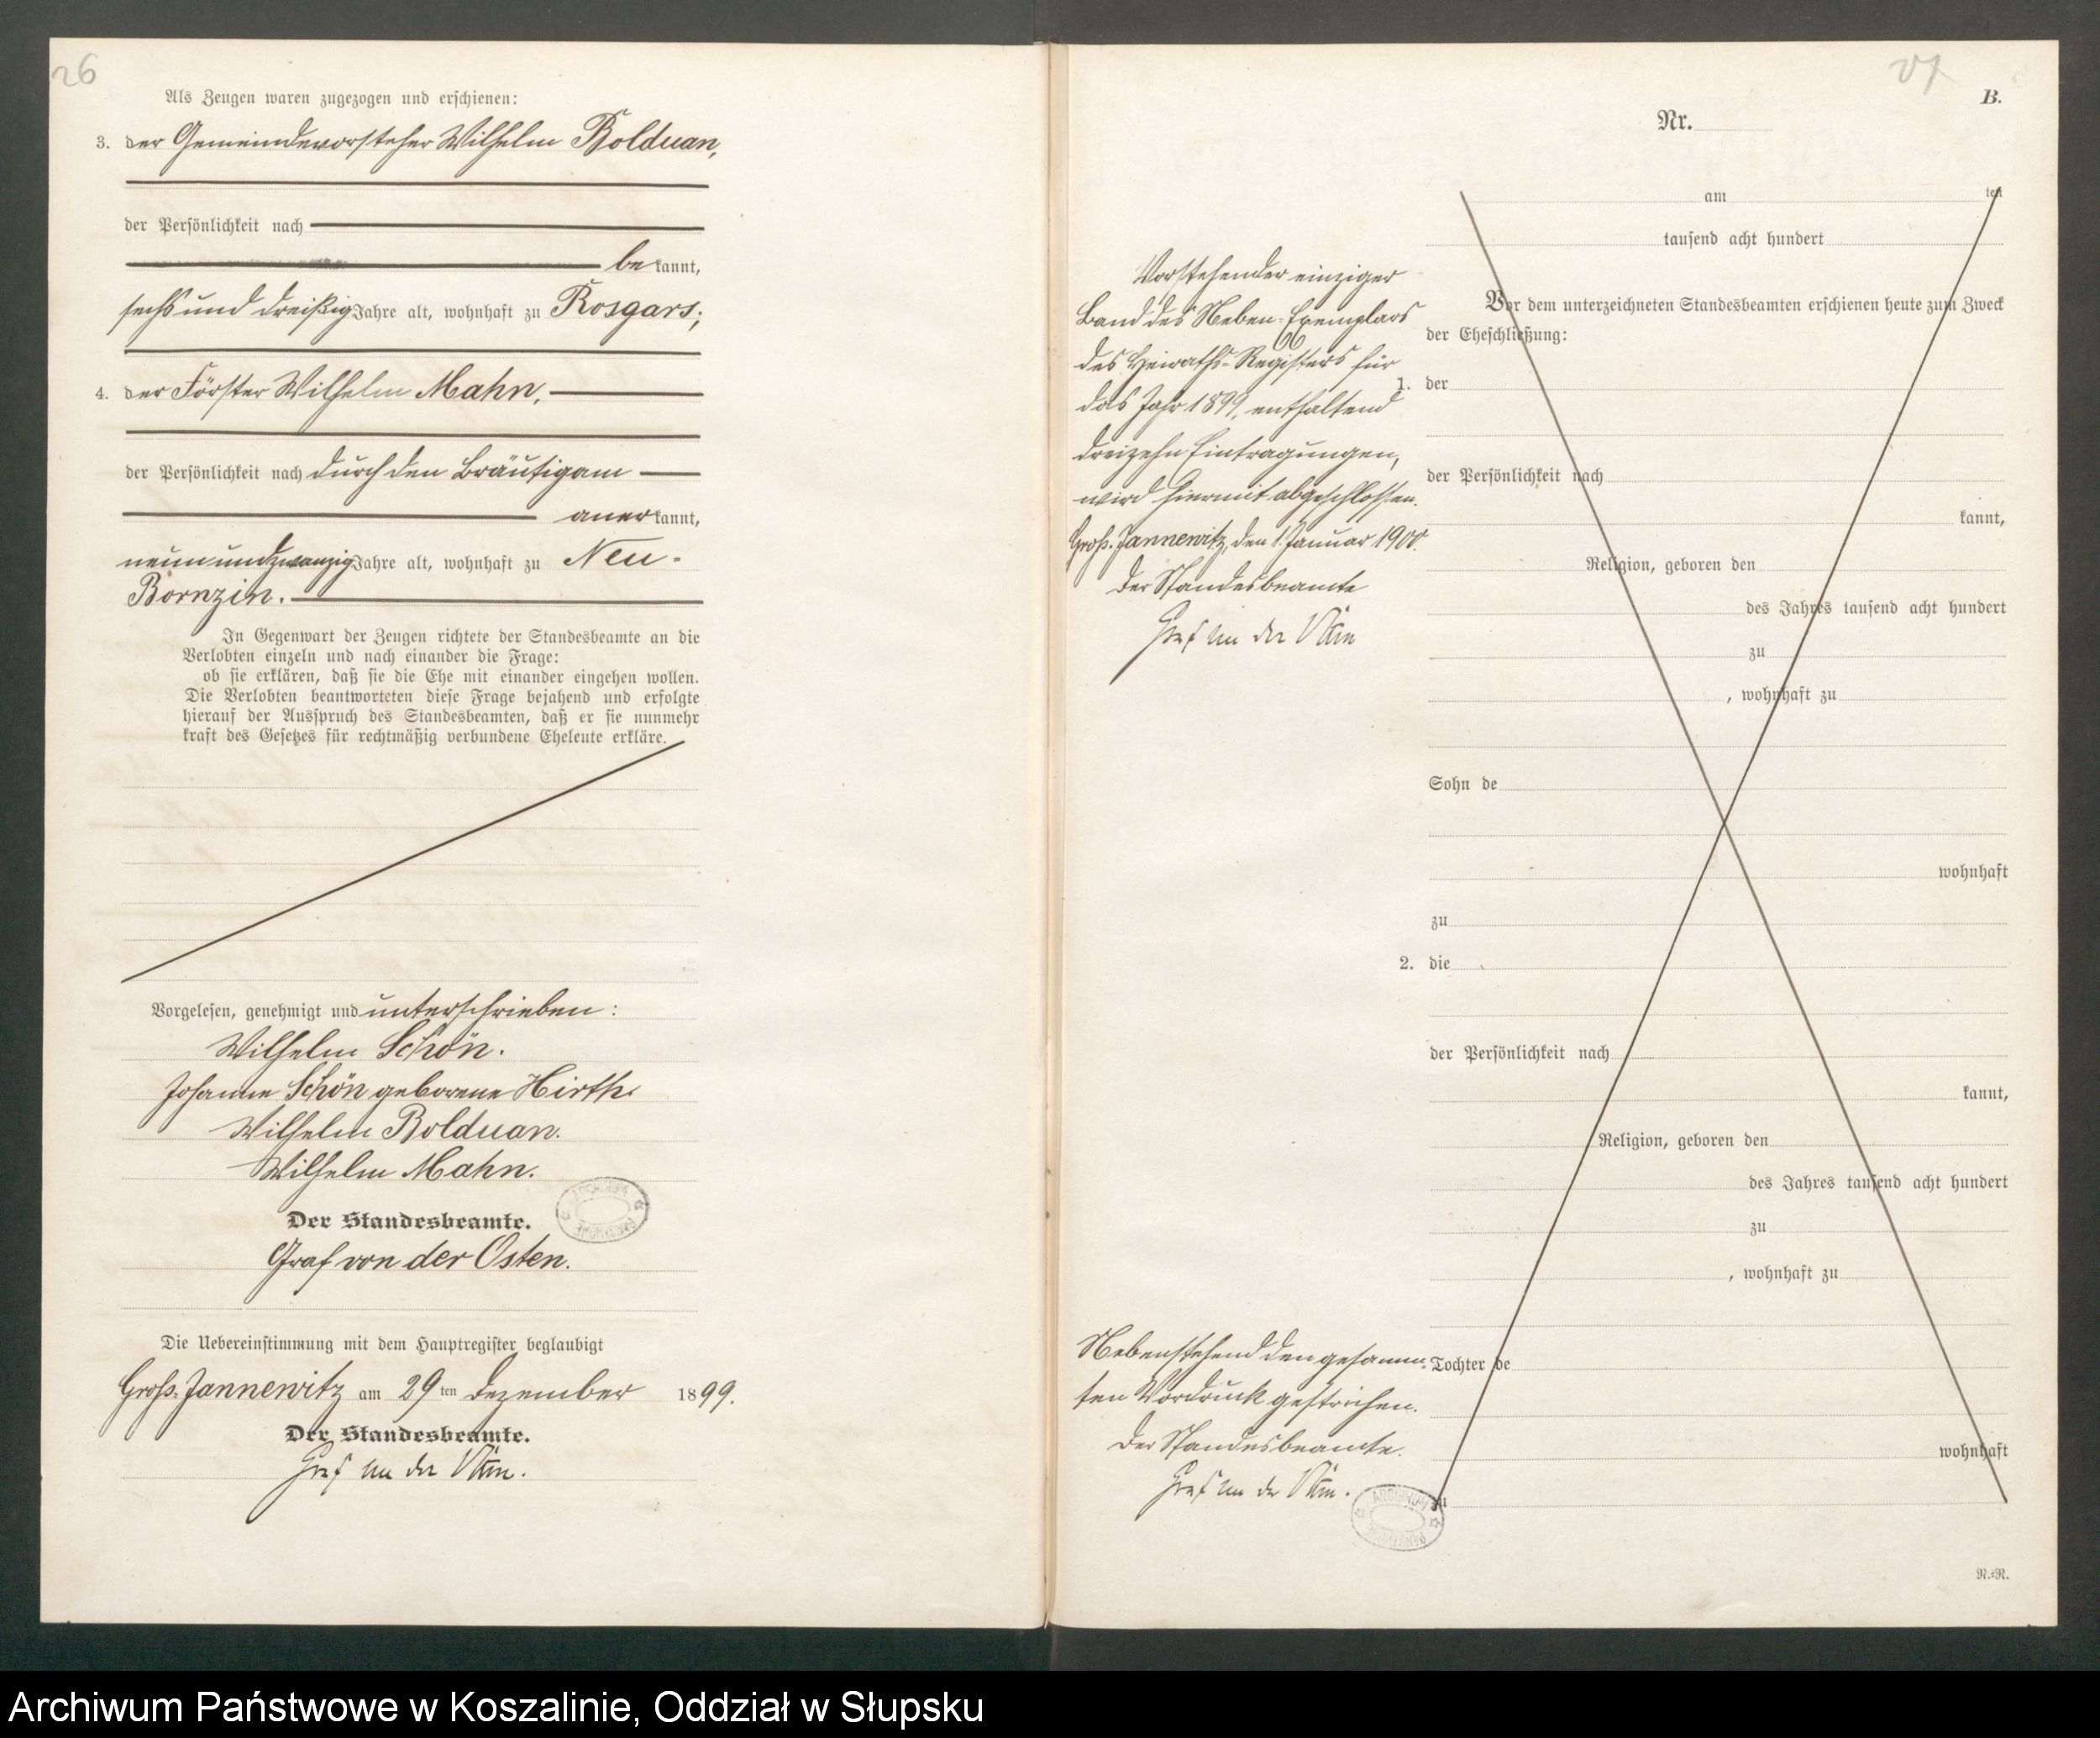 26
Als Zeugen waren zugezogen und erschienen:
3. der Gemeindevorsteher Wilhelm Bolduan,
der Persönlichkeit nach
bekannt,
sechs und dreißig Jahre alt, wohnhaft zu Rosgars;
4. der Förster Wilhelm Mahn,
der Persönlichkeit nach durch den Bräutigam
anerkannt,
neunundzwanzig Jahre alt, wohnhaft zu Neu-
Bornzin.
In Gegenwart der Zeugen richtete der Standesbeamte an die
Verlobten einzeln und nach einander die Frage:
ob sie erklären, daß sie die Ehe mit einander eingehen wollen.
Die Verlobten beantworteten diese Frage bejahend und erfolgte
hierauf der Ausspruch des Standesbeamten, daß er sie nunmehr
kraft des Gesetzes für rechtmäßig verbundene Eheleute erkläre.
Vorgelesen, genehmigt und unterschrieben:
Wilhelm Schön.
Johanne Schön geborene Hirth.
Wilhelm Bolduan.
Wilhelm Mahn.
Der Standesbeamte.
Graf von der Osten.
Die Uebereinstimmung mit dem Hauptregister beglaubigt
Groß-Jannewitz am 29ten Dezember 1899.
Der Standesbeamte.
Graf von der Osten.
27
B.
Nr.
am ten
tausend acht hundert
Vorstehender einziger
Band des Neben-Exemplars
des Heiraths-Registers für
das Jahr 1899, enthaltend
dreizehn Eintragungen,
wird hiermit abgeschlossen.
Groß-Jannewitz, den 1. Januar 1900.
Der Standesbeamte
Graf von der Osten
Vor dem unterzeichneten Standesbeamten erschienen heute zum Zweck
der Eheschließung:
1. der
der Persönlichkeit nach
kannt,
Religion, geboren den
des Jahres tausend acht hundert
zu
, wohnhaft zu
Sohn de
wohnhaft
zu
2. die
der Persönlichkeit nach
kannt,
Religion, geboren den
des Jahres tausend acht hundert
zu
, wohnhaft zu
Tochter de
wohnhaft
zu
Nebenstehend den gesamm-
ten Vordruck gestrichen.
Der Standesbeamte.
Graf von der Osten.
ARCHIWUM
N.=N.
Archiwum Państwowe w Koszalinie, Oddział w Słupsku